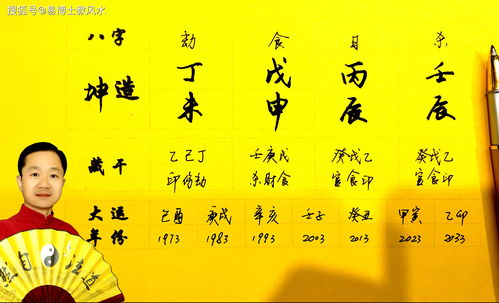 搜狐号@易博士教风水
八字 劫 食 日 杀
坤造 丁 戊 丙 壬
未 申 辰 辰
藏干 乙己丁 壬庚戊 癸戊乙 癸戊乙
印伤劫 杀财食 官食印 官食印
大运 己酉 庚戌 辛亥 壬子 癸丑 甲寅 乙卯
年份 1973 1983 1993 2003 2013 2023 2033
道法自然